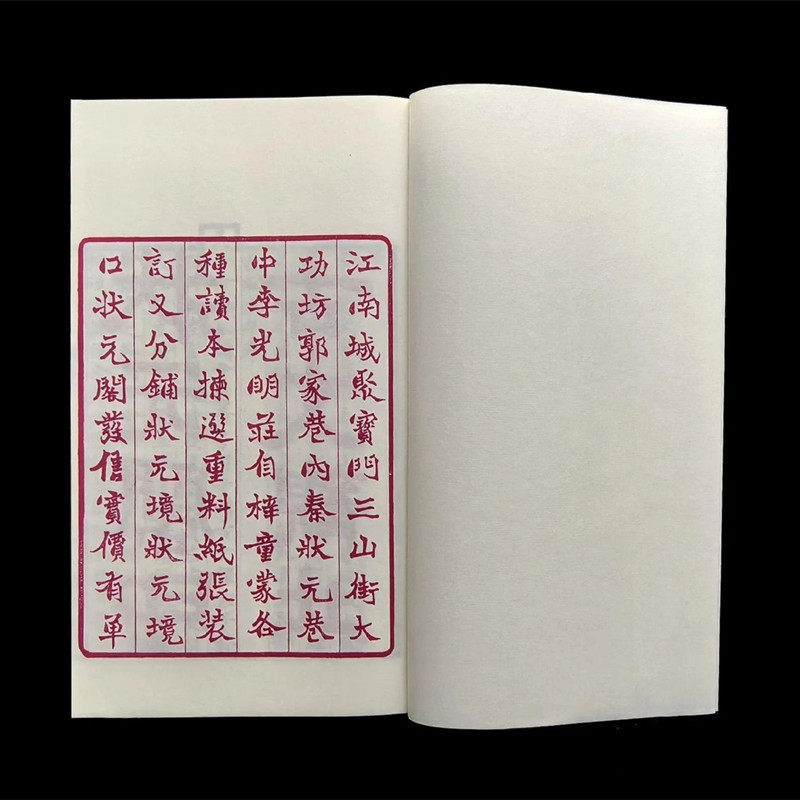 江南城聚寶門三山街大
功坊郭家巷內秦狀元巷
中李光明莊自梓童蒙各
種讀本揀選重料紙張装
訂又分鋪狀元境狀元境
口狀元閣發售實價有单